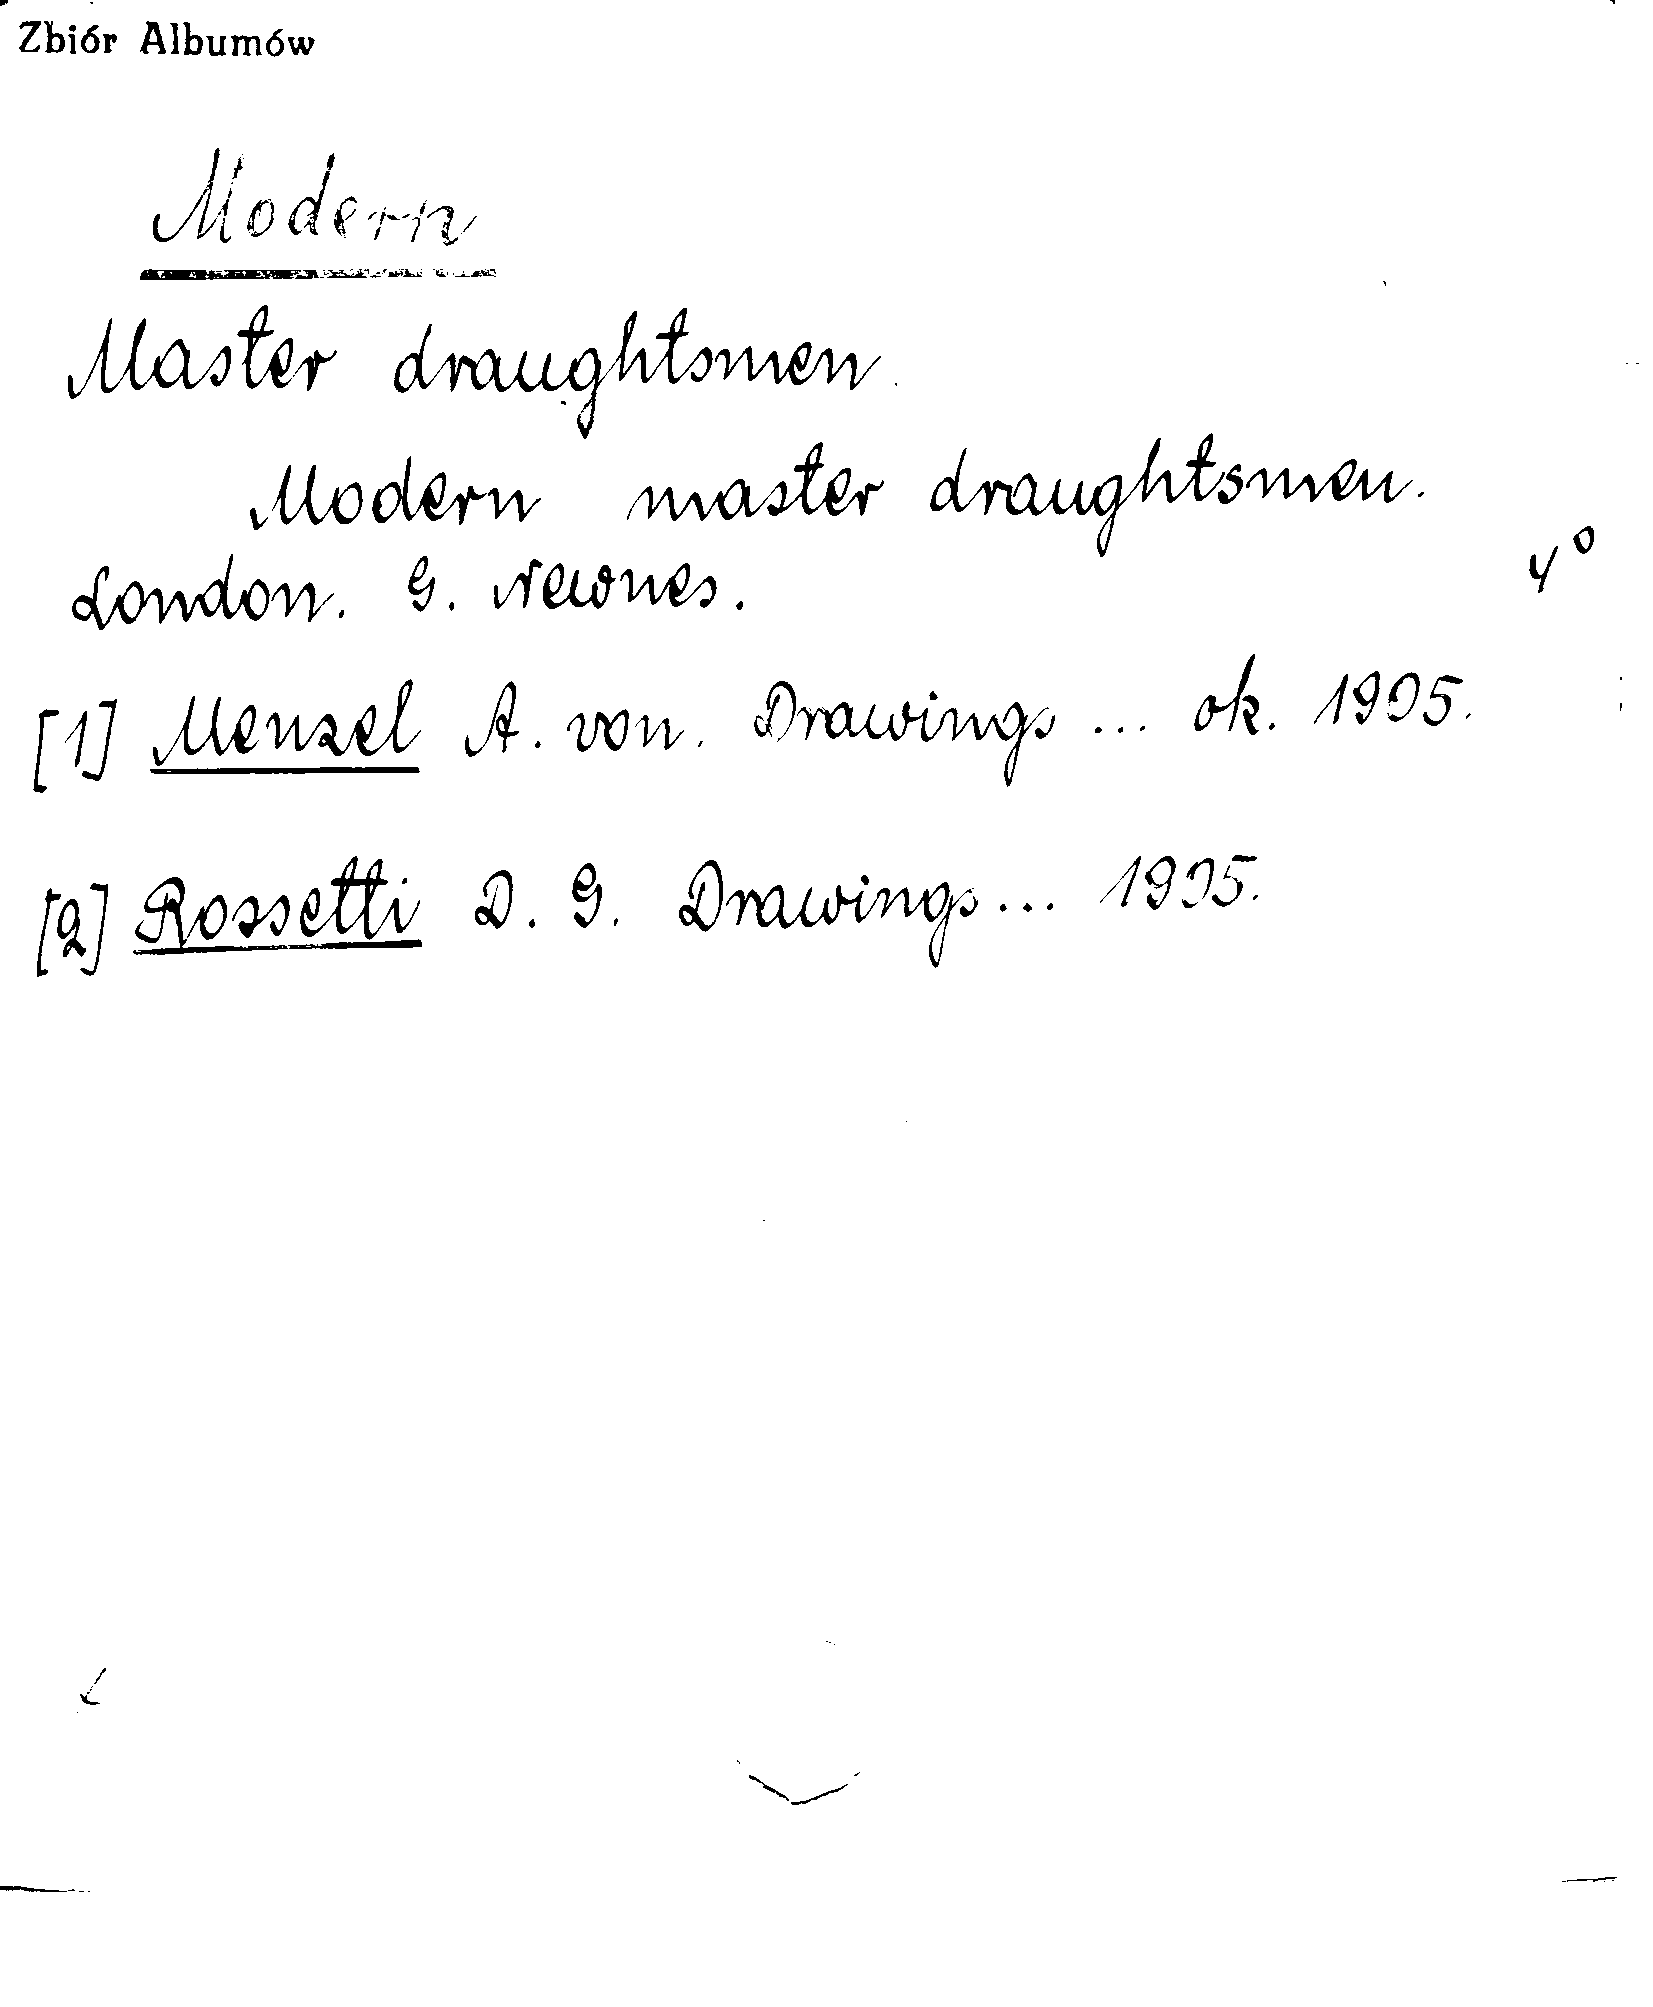 Zbiór Albumów
Modern
Master draughtsmen.
Modern master draughtsmen.
London. G. Newnes. 4°
[1] Menzel A. von. Drawings ... ok. 1905.
[2] Rossetti D. G. Drawings ... 1905.